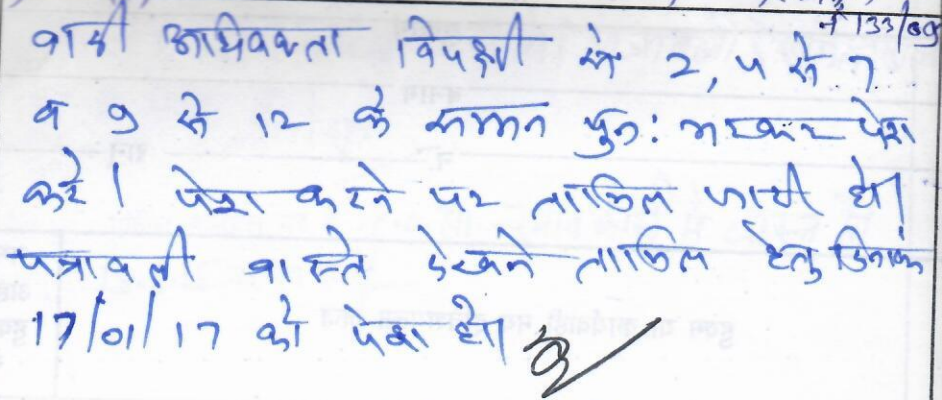 नं 133/09
वादी अधिवक्ता विपक्षी सं 2, 5 से 7
व 9 से 12 के सम्मन पुनः भरकर पेश
करे। पेश करने पर तामिल जारी हो।
पत्रावली वास्ते देखने तामिल हेतु दिनांक
17/01/17 को पेश हो।